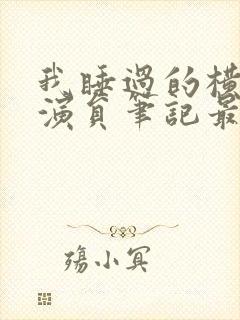 我睡過的橫
演員筆記最
殤小冥